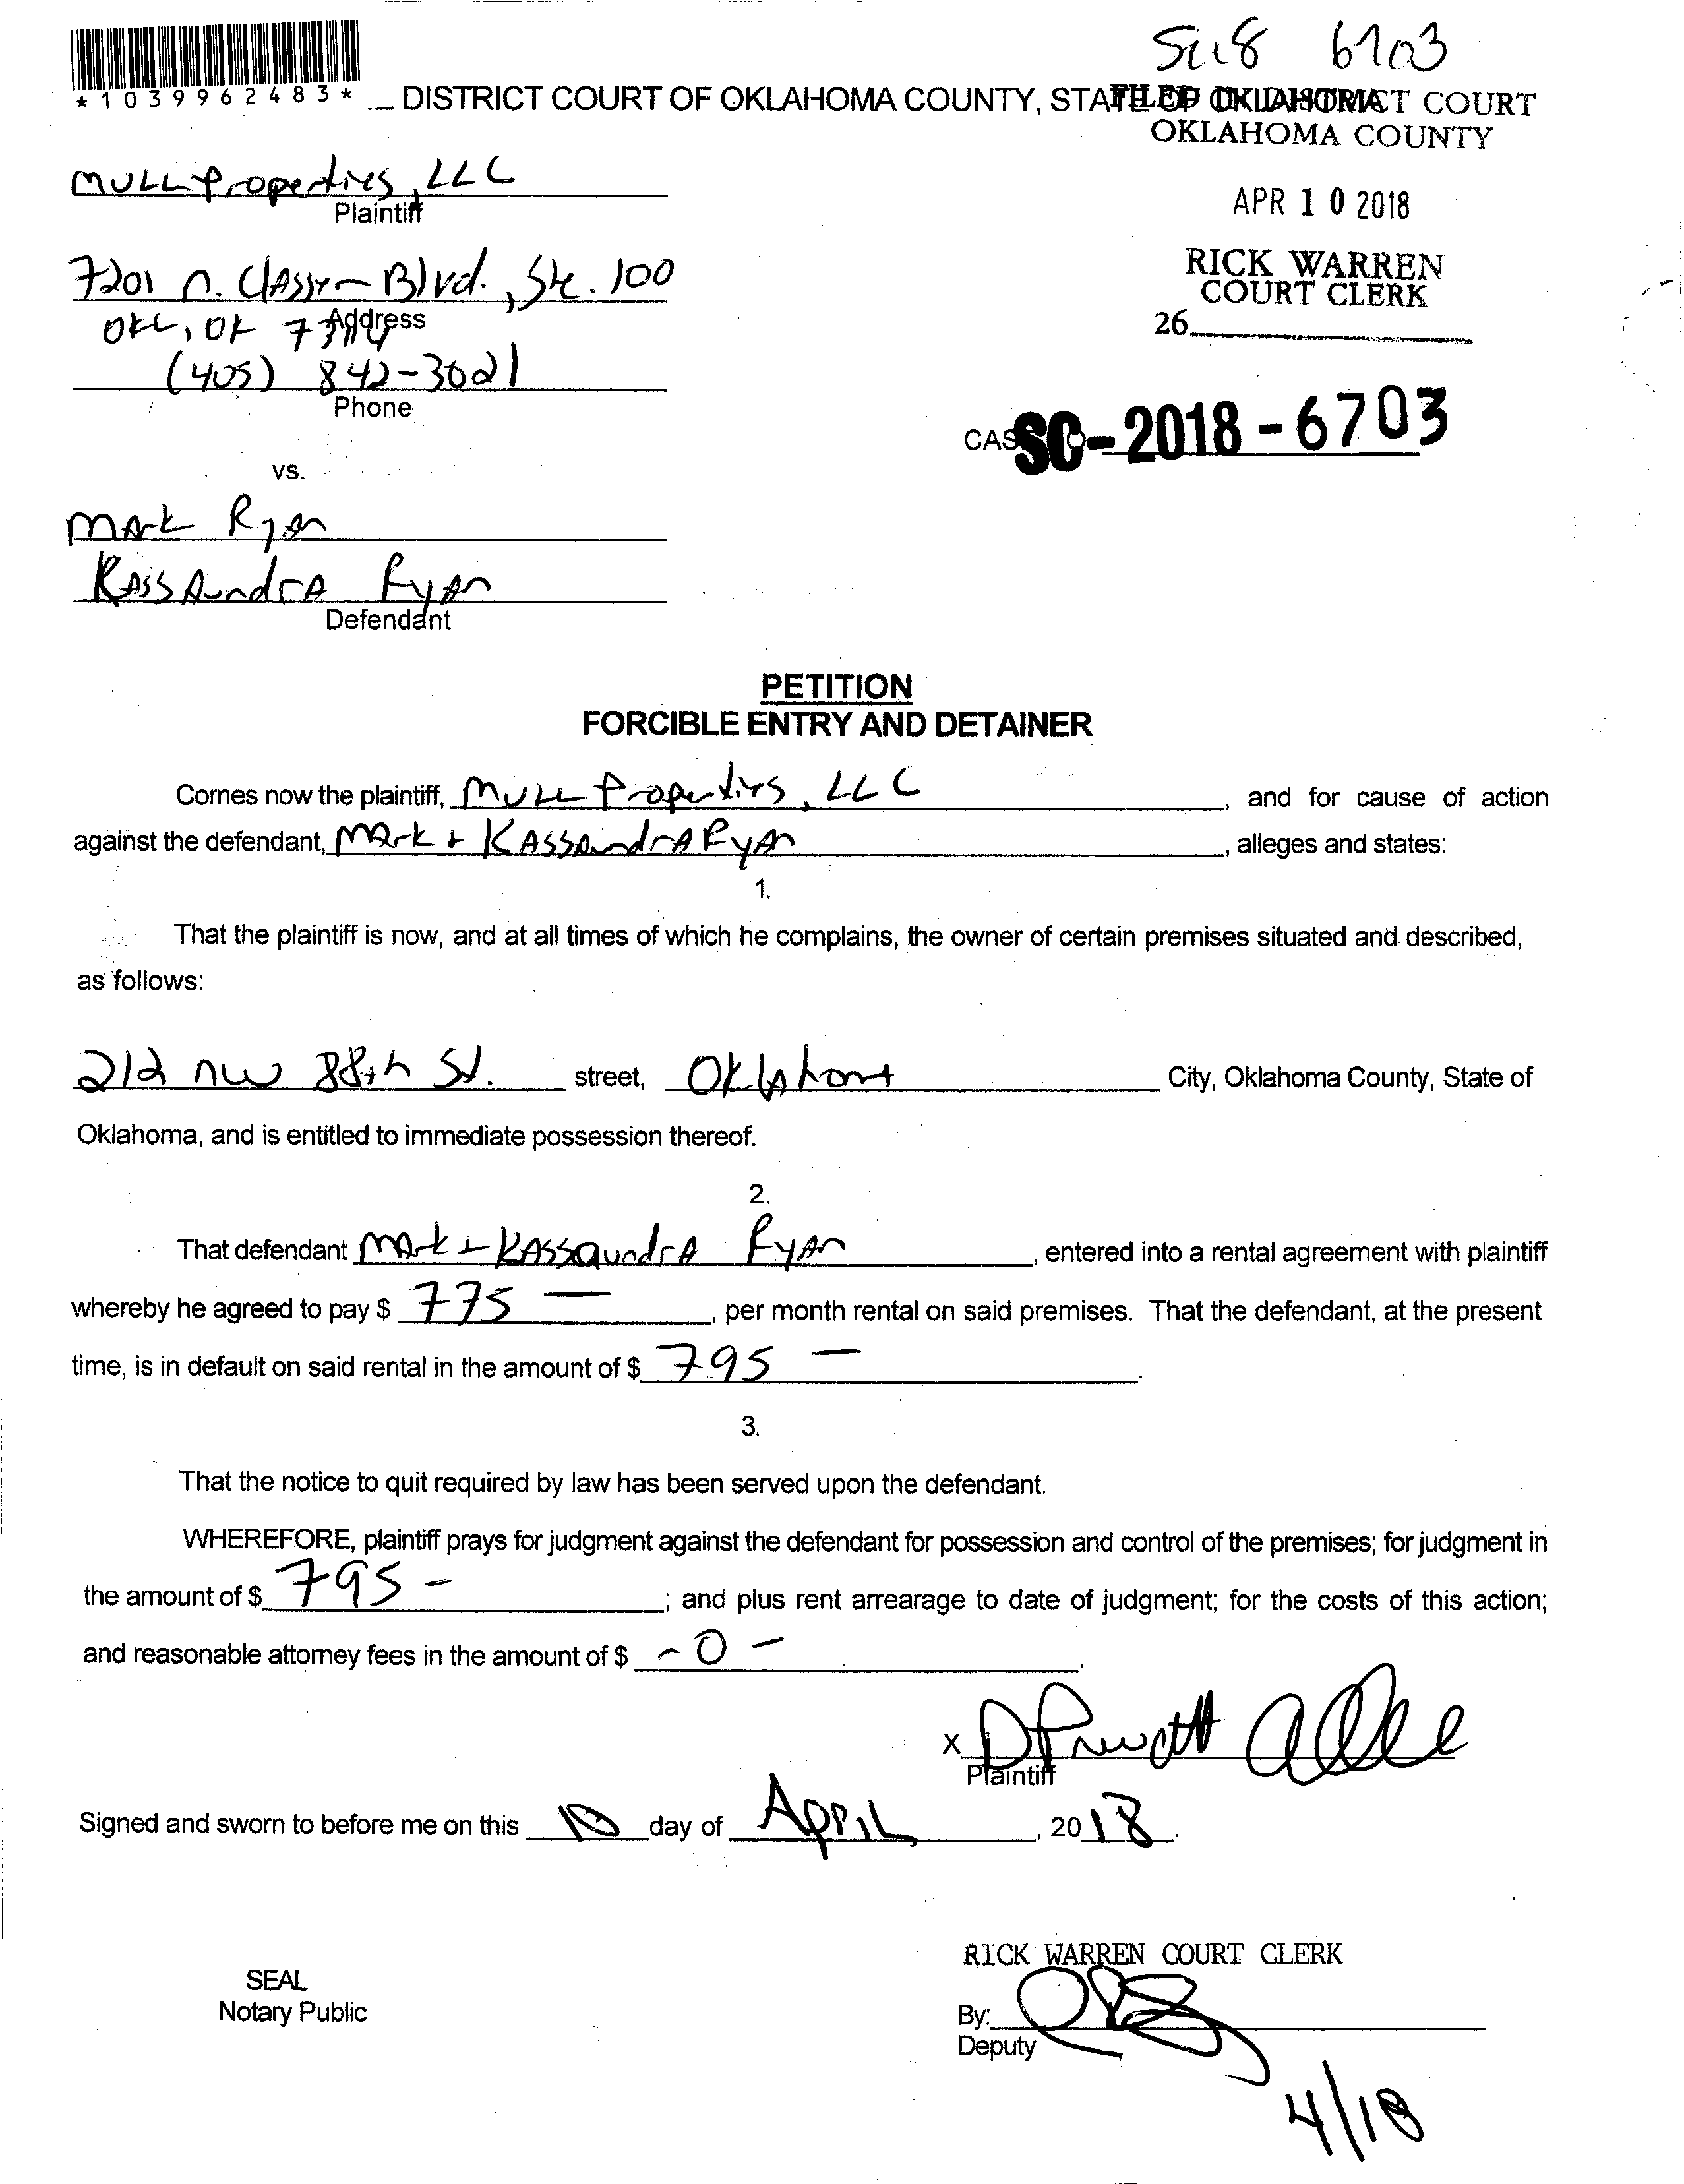 SC18 6703
*1039962483*
DISTRICT COURT OF OKLAHOMA COUNTY, STATE OF OKLAHOMA
FILED IN DISTRICT COURT
OKLAHOMA COUNTY
MULL Properties, LLC
Plaintiff
APR 10 2018
7201 N. Classen Blvd., Ste. 100
RICK WARREN
COURT CLERK
OKC, OK
Address
26
(405) 842-3021
Phone
CAS
SC-2018-6703
vs.
Mark Ryan
Kassaundra Ryan
Defendant
PETITION
FORCIBLE ENTRY AND DETAINER
Comes now the plaintiff, MULL Properties, LLC, and for cause of action
against the defendant, Mark + Kassandra Ryan, alleges and states:
1.
That the plaintiff is now, and at all times of which he complains, the owner of certain premises situated and described,
as follows:
212 NW 88th St. street, Oklahoma City, Oklahoma County, State of
Oklahoma, and is entitled to immediate possession thereof.
2.
That defendant Mark + Kassaundra Ryan, entered into a rental agreement with plaintiff
whereby he agreed to pay $ 775 —, per month rental on said premises. That the defendant, at the present
time, is in default on said rental in the amount of $ 795 —.
3.
That the notice to quit required by law has been served upon the defendant.
WHEREFORE, plaintiff prays for judgment against the defendant for possession and control of the premises; for judgment in
the amount of $ 795 -; and plus rent arrearage to date of judgment; for the costs of this action;
and reasonable attorney fees in the amount of $ -0-.
X
Plaintiff
Signed and sworn to before me on this 10 day of April, 2018.
RICK WARREN COURT CLERK
SEAL
Notary Public
By:
Deputy
4/18